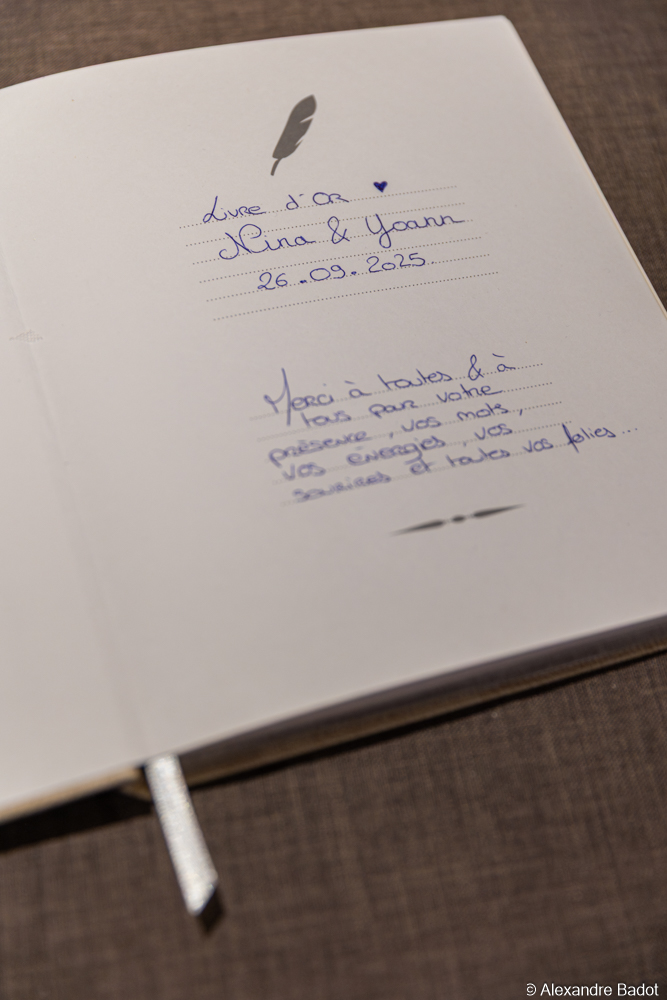 Livre d'Or ♥
Nina & Yoann
26.09.2025.
Merci à toutes & à
tous pour votre
présence, vos mots,
vos énergies, vos
sourires et toutes vos folies...
© Alexandre Badot